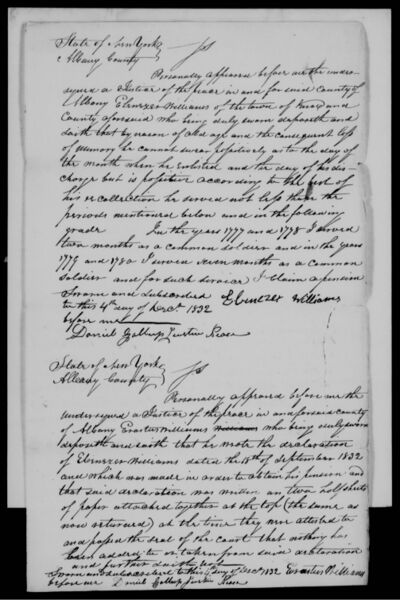 State of New York
Albany County } ss
Personally appeared before me the under-
signed a Justice of the peace in and for said County of
Albany Ebenezer Williams of the town of Knox and
County aforesaid who being duly sworn deposeth and
saith that by reason of old age and the consequent loss
of memory he cannot swear positively as to the day of
the month when he enlisted and the day of his dis-
charge but is positive according to the best of
his recollection he served not less than the
periods mentioned below and in the following
grade In the years 1777 and 1778 I served
two months as a common soldier and in the years
1779 and 1780 I served seven months as a common
soldier and for such service I claim a pension
Sworn and Subscribed Ebenezer Williams
to this 4th day of Decr. 1832
before me
Daniel Gallup Justice Peace
State of New York
Albany County } ss
Personally appeared before me the
undersigned a Justice of the peace in and for said county
of Albany Erastus Williams who being duly sworn
deposeth and saith that he wrote the declaration
of Ebenezer Williams dated the 18th of September 1832
and which was made in order to obtain his pension and
that said declaration was written on two half sheets
of paper attached together at the top (the same as
now returned) at the time they were attested to
and passed the seal of the court that nothing has
been added to or taken from said declaration
and further saith not
Sworn and subscribed to this day of Decr. 1832 Erastus Williams
before me Daniel Gallup Justice Peace